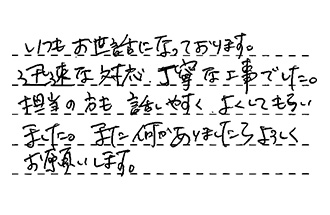 いつもお世話になっております。
迅速な対応、丁寧な工事でした。
担当の方も 話しやすく よくしてもらい
ました。また何かありましたらよろしく
お願いします。